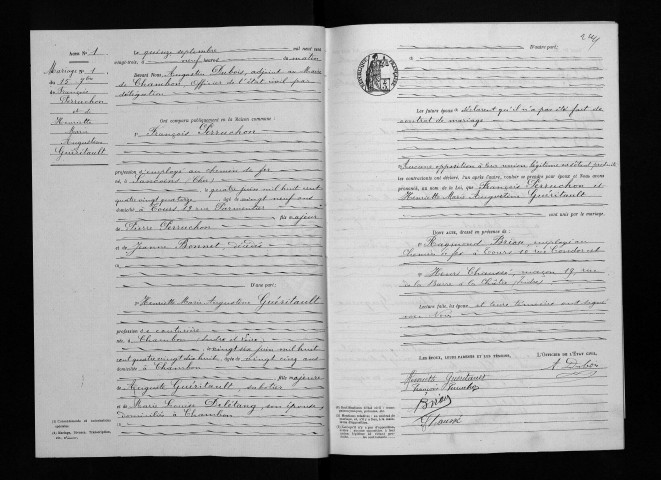 Acte N° 1
Mariage N° 1
du 15 7bre
François
Perruchon
et de
Henriette
Marie
Augustine
Guéritault
Le quinze septembre mil neuf cent
vingt-trois, à neuf heures du matin
Devant Nous, Augustin Dubois, adjoint au Maire
de Chambon, Officier de l'état civil par
délégation
Ont comparu publiquement en la Maison commune :
François Perruchon
profession d'employé au chemin de fer
né à (Cher)
le quatre juin mil huit cent
quatre vingt quatorze âgé de vingt neuf ans
domicilié à Tours 19 rue Parmentier
fils majeur
de Pierre Perruchon
et de Jeanne Bonnet, décédés
D'une part ;
Henriette Marie Augustine Guéritault
profession de couturière
née à Chambon Indre et Loire
le vingt six juin mil huit
cent quatre vingt dix huit âgée de vingt cinq ans
domiciliée à Chambon
fille majeure
de Auguste Guéritault sabotier
et de Marie Louise Delétang son épouse
domiciliés à Chambon
D'autre part ;
Les futurs époux déclarent qu'il n'a pas été fait de
contrat de mariage
Aucune opposition à leur union légitime n'existant
les contractants ont déclaré, l'un après l'autre, vouloir se prendre pour époux et Nous avons
prononcé, au nom de la Loi, que François Perruchon et
Henriette Marie Augustine Guéritault
sont unis par le mariage.
Dont acte, dressé en présence de :
Raymond Brion, employé au
chemin de fer à Tours 10 rue Condorcet
Henri Chausse, maçon, 19 rue
de la Barre à la Châtre (Indre)
Lecture faite, les époux et leurs témoins ont signé
avec Nous
Les époux, leurs parents et les témoins,
L'Officier de l'État civil,
A Dubois
Henriette Guéritault
François Perruchon
Brion
Chausse